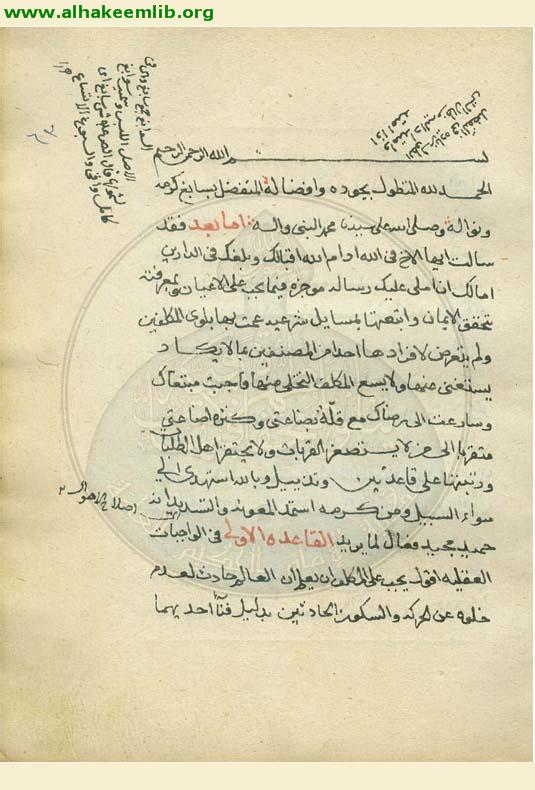 www.alhakeemlib.org
بسم الله الرحمن الرحيم
الحمد لله المتطول بجوده وافضاله المتفضل بسابغ كرمه
ونواله وصلى الله على سيدنا محمد النبي واله اما بعد فقد
سالت ايها الاخ في الله ادام الله اقبالك وبلغك في الدارين
امالك ان املي عليك رساله موجزة فيما يجب على الاعيان وبمعرفته
يتحقق الايمان واتبعتها بمسايل شرعيه عمت بها بلوى المكلفين
ولم يتعرض لافرادها احد من المصنفين مما لا يكاد
يستغنى عنها ولا يسع المكلف التخلي منها فاجبت مبتغاك
وسارعت الى رضاك مع قلة بضاعتي وكثرة اضاعتي
متقربا الى من لا يستصغر القربات ولا يحتقر اهل الطلبات
ورتبتها على قاعدتين وتذييل وبالله استهدي الى
سواء السبيل ومن كرمه استمد المعونه والتسديد انه
اصلاح الاحوال
حميد مجيد فعال لما يريد القاعده الاولى في الواجبات
العقليه اقول يجب على المكلف ان يعلم ان العالم حادث لعدم
خلوه عن الحركه والسكون الحادثين بدليل فنا احديهما